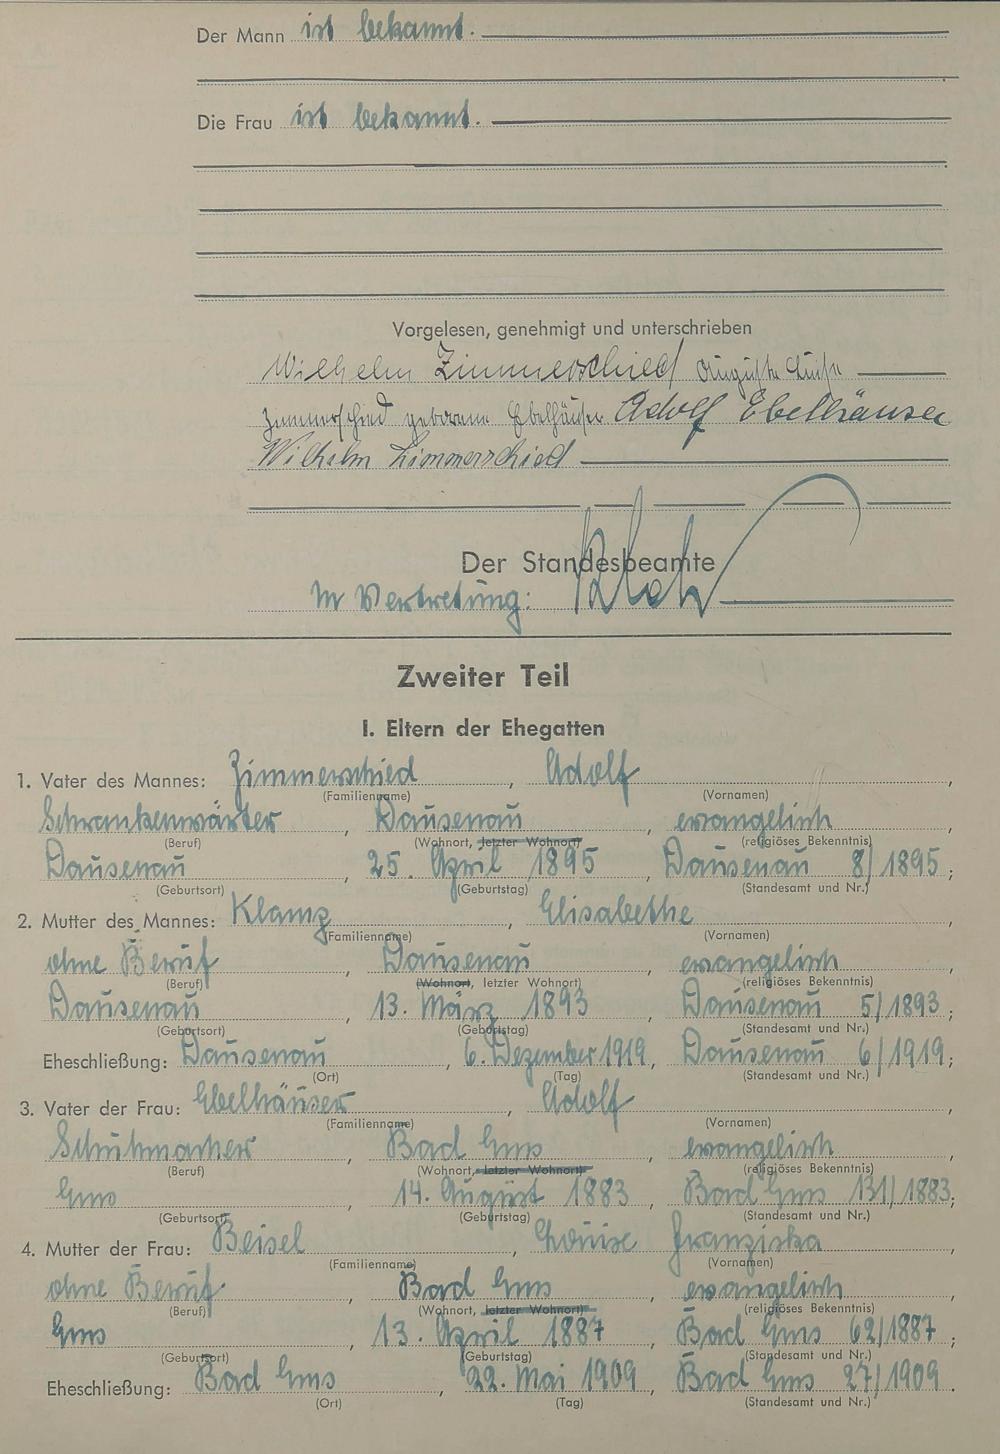 Der Mann ist bekannt.
Die Frau ist bekannt.
Vorgelesen, genehmigt und unterschrieben
Wilhelm Zimmerschied Auguste Luise
Zimmerschied geborene Ebelhäuser Adolf Ebelhäuser
Wilhelm Zimmerschied
Der Standesbeamte
In Vertretung:
Zweiter Teil
I. Eltern der Ehegatten
1. Vater des Mannes: Zimmerschied, Adolf,
(Familienname) (Vornamen)
Schrankenwärter, Dausenau, evangelisch,
(Beruf) (Wohnort, letzter Wohnort) (religiöses Bekenntnis)
Dausenau, 25. April 1895, Dausenau 8/1895;
(Geburtsort) (Geburtstag) (Standesamt und Nr.)
2. Mutter des Mannes: Klamp, Elisabethe,
(Familienname) (Vornamen)
ohne Beruf, Dausenau, evangelisch,
(Beruf) (Wohnort, letzter Wohnort) (religiöses Bekenntnis)
Dausenau, 13. März 1893, Dausenau 5/1893,
(Geburtsort) (Geburtstag) (Standesamt und Nr.)
Eheschließung: Dausenau, 6. Dezember 1919, Dausenau 6/1919;
(Ort) (Tag) (Standesamt und Nr.)
3. Vater der Frau: Ebelhäuser, Adolf,
(Familienname) (Vornamen)
Schuhmacher, Bad Ems, evangelisch,
(Beruf) (Wohnort, letzter Wohnort) (religiöses Bekenntnis)
Ems, 14. August 1883, Bad Ems 131/1883;
(Geburtsort) (Geburtstag) (Standesamt und Nr.)
4. Mutter der Frau: Beisel, Louise Franziska,
(Familienname) (Vornamen)
ohne Beruf, Bad Ems, evangelisch,
(Beruf) (Wohnort, letzter Wohnort) (religiöses Bekenntnis)
Ems, 13. April 1887, Bad Ems 62/1887;
(Geburtsort) (Geburtstag) (Standesamt und Nr.)
Eheschließung: Bad Ems, 22. Mai 1909, Bad Ems 27/1909.
(Ort) (Tag) (Standesamt und Nr.)